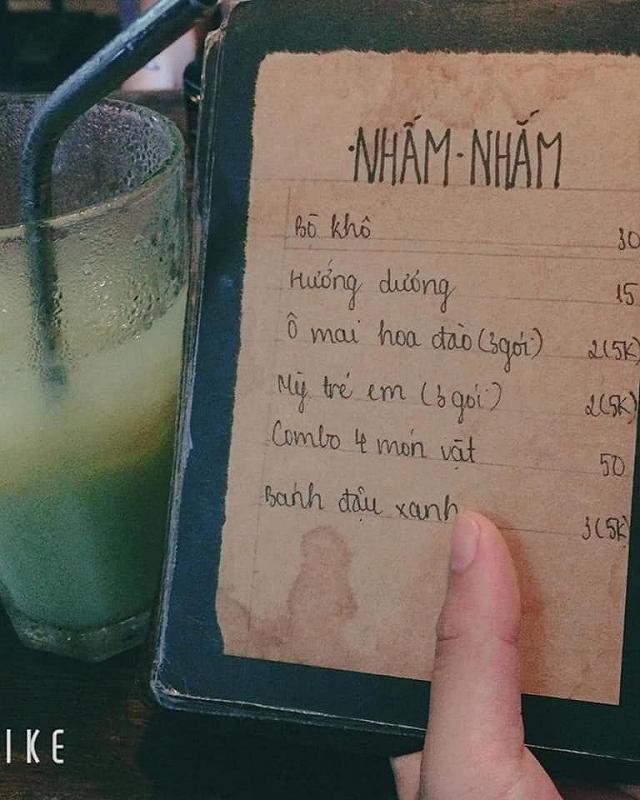 NHẤM - NHẮM
Bò khô 30
Hướng dương 15
Ô mai hoa đào (3 gói) 2(5K)
Mỳ trẻ em (3 gói) 2(5K)
Combo 4 món vặt 50
Bánh đậu xanh 3(5K
IKE